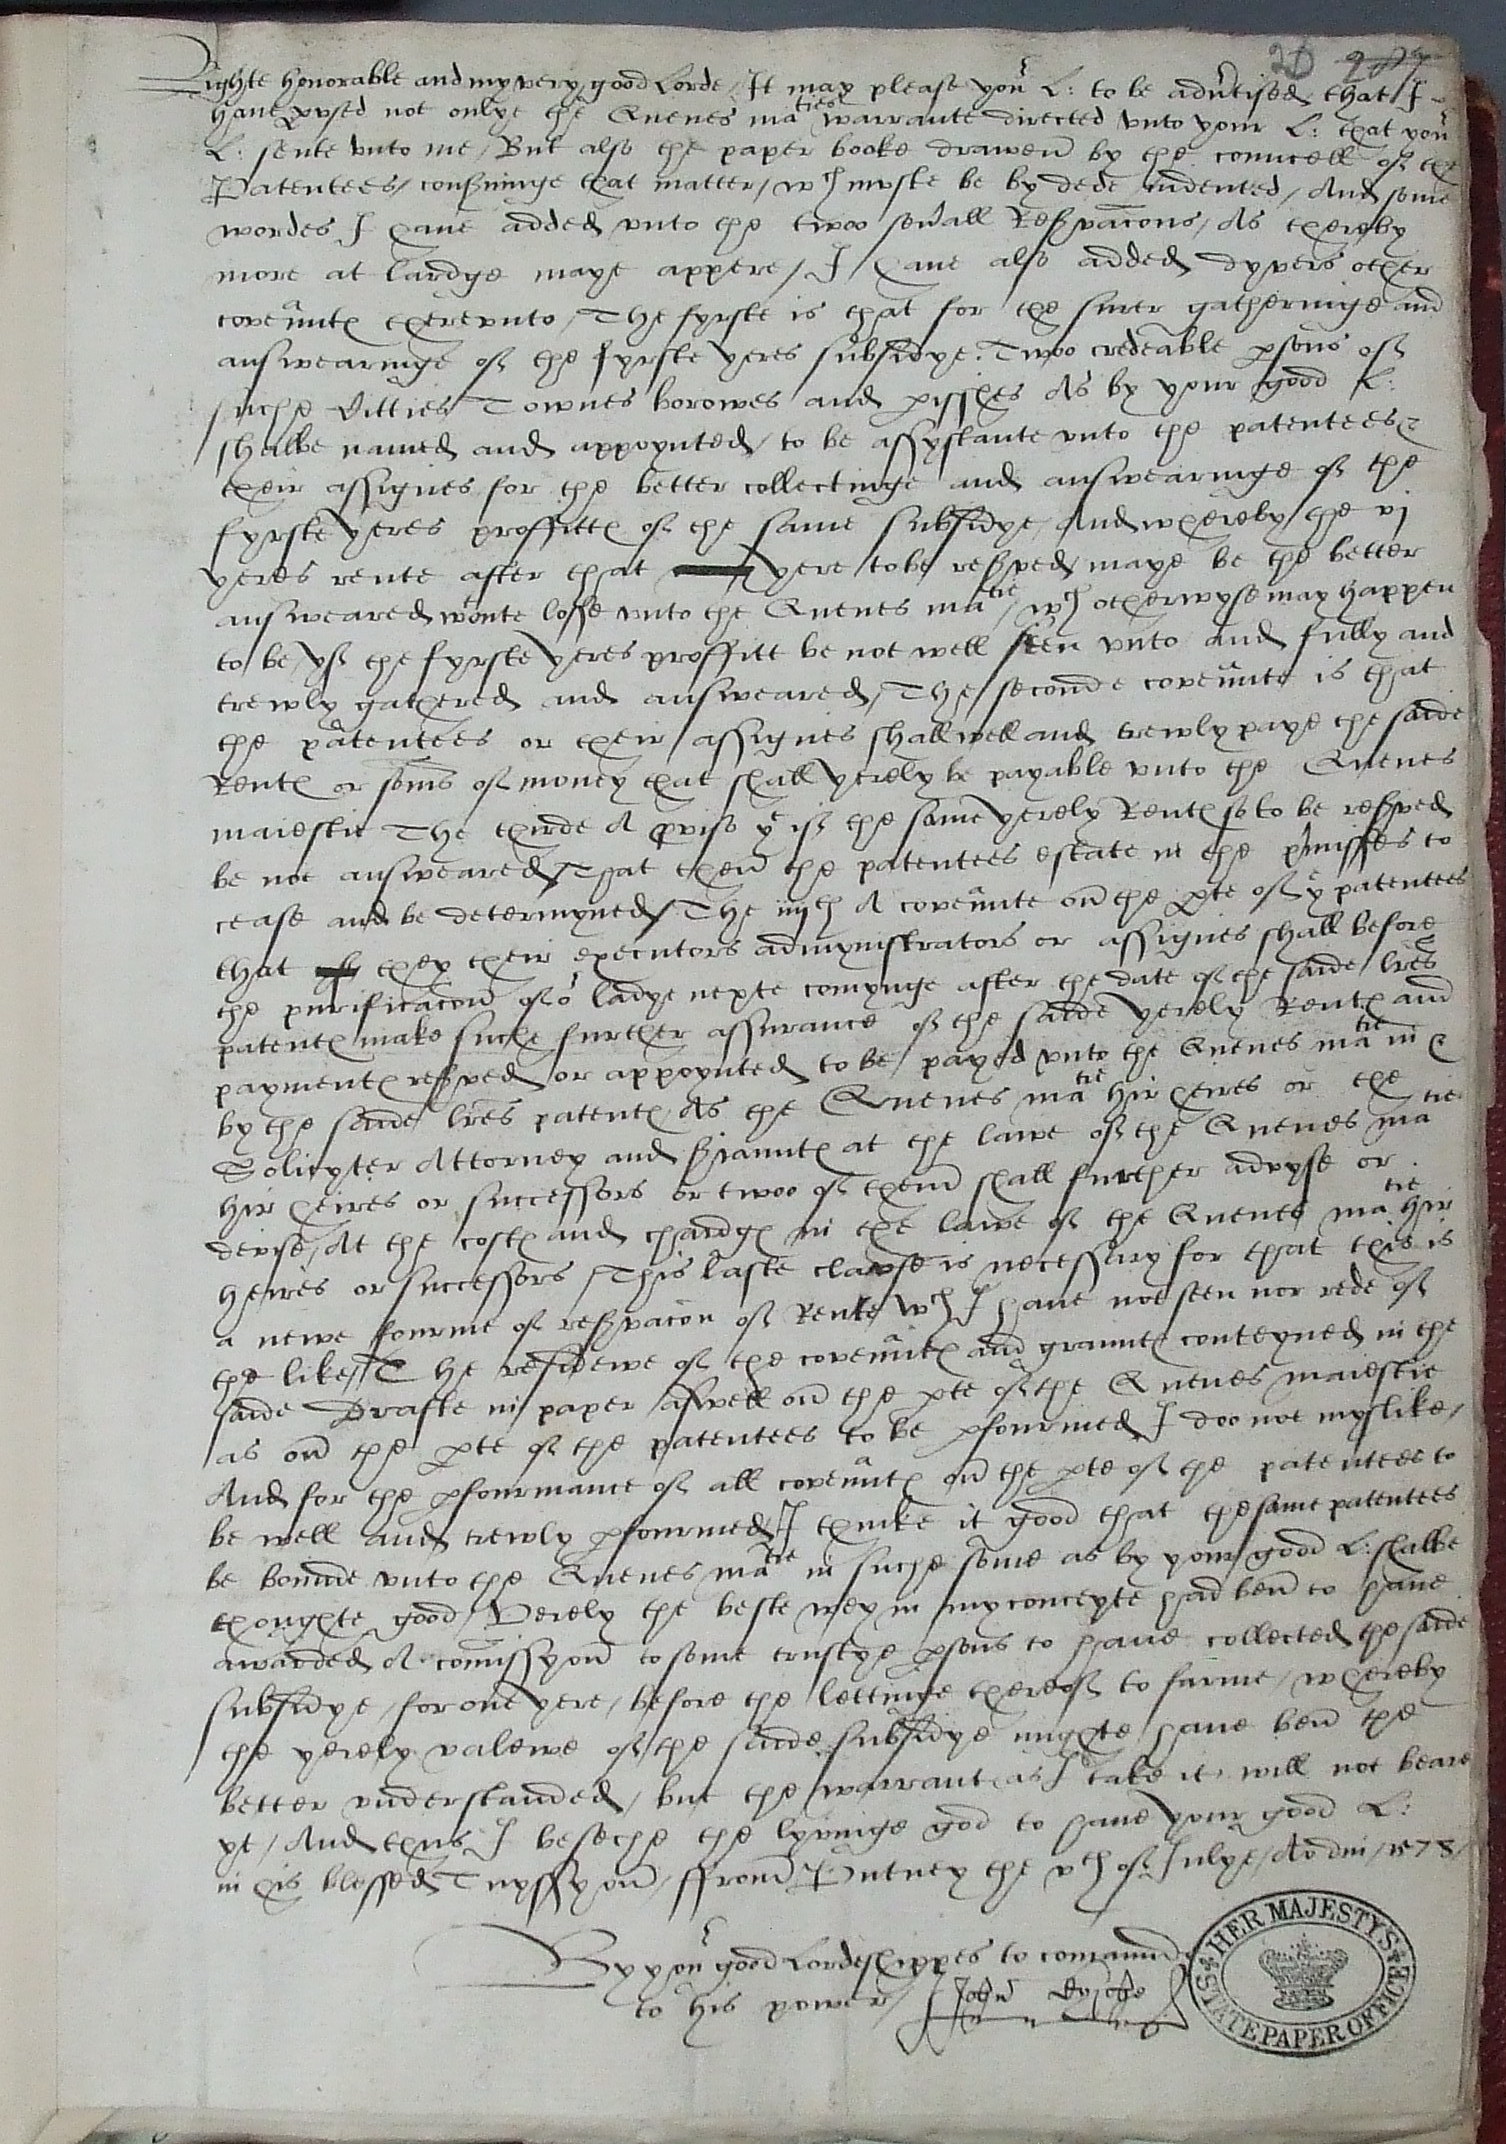 20 287
Righte honorable and my very good Lorde, It may please yor L: to be advrtised that I
have pvsed not onlye the Quenes maties warrante directed vnto your L: that yor
L: sente vnto me, But also the paper booke drawen by the councell of the
Patentees, conserninge that matter, wch muste be by dede indented, And some
wordes I have added vnto the twoo sevall Reservacons, As thereby
more at lardge maye appere, I have also added dyvers other
covennts therevnto, The fyrste is that for the surer gatheringe and
answearinge of the fyrste yeres subsidye. Twoo credeable psons of
suche Citties Townes borowes and pisshes As by your good L:
shalbe named and appoynted, to be assystante vnto the patentees &
their assignes for the better collectinge and answearinge of the
fyrste yeres proffitts of the same subsidye, And whereby the vj
yeres rente after that yere to be reserved, maye be the better
answeared wthoute losse vnto the Quenes matie, wch otherwyse may happen
to be, yf the fyrste yeres proffitt be not well seen vnto and fully and
trewly gathered and answeared, The seconde covennte is that
the patentees or their assignes shall well and trewly paye the saide
Rents or soms of money that shall yerely be payable vnto the Quenes
maiestie The thirde A pviso yt if the same yerely Rents so to be reserved
be not answeared, That then the patentees estate in the pmisses to
cease and be determyned, The iiijth A covennte on the pte of ye patentees
that they their executors admynistrators or assignes shall before
the purificacon of or ladye nexte comynge after the date of the saide lres
patents make suche further assurance of the saide yerely Rents and
payments reserved or appoynted to be payed vnto the Quenes matie in &
by the saide lres patents As the Quenes matie hir heires or the
Solicyter Attorney and serjaunts at the lawe of the Quenes matie
hir heires or successors or twoo of them shall further advyse or
devise, At the costs and chardgs in the lawe of the Quenes matie hir
heires or successors, This laste clawse is necessary for that this is
a newe fourme of reservacon of Rente wch I have not seen nor rede of
the like, The residewe of the covennts and graunts conteyned in the
saide Drafte in paper aswell on the pte of the Quenes maiestie
as on the pte of the patentees to be pfourmed I doo not myslike,
And for the pfourmance of all covennts on the pte of the patentees to
be well and trewly pfourmed, I thinke it good that the same patentees
be bounde vnto the Quenes matie in suche some as by your good L: shalbe
thoughte good, Verely the beste wey in my conceyte had ben to have
awarded A comissyon to some trustye psons to have collected the saide
subsidye, for one yere, before the lettinge thereof to farme, whereby
the yerely valewe of the saide subsidye mighte have ben the
better vnderstanded, but the warrant as I take it will not beare
yt, And thus I beseche the lyvinge god to have your good L:
in his blessed Tuyssyon, ffrom Putney the vth of Julye, Ao dni, 1578,
By yor good Lordeshippes to comaund
to his power, John
HER MAJESTY'S STATE PAPER OFFICE